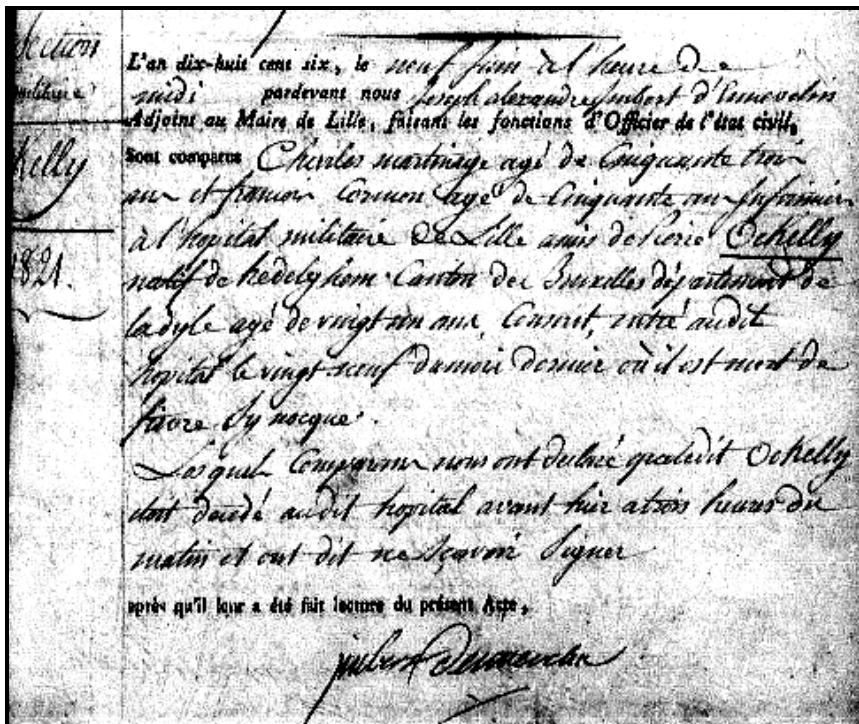 Section
militaire
Kelly
1821.
L'an dix-huit cent six, le neuf juin à l'heure de
midi pardevant nous Joseph alexandre Imbert d'Ennevelin
Adjoint au Maire de Lille, faisant les fonctions d'Officier de l'état civil,
Sont comparus Charles martinage agé de Cinquante trois
ans et francois Cormon agé de Cinquante ans Infirmiers
à l'hopital militaire de Lille amis de Pierre Ockelly
natif de hedelghem Canton de Bruxelles département de
la dyle agé de vingt un ans, Conscrit, entré audit
hopital le vingt neuf du mois dernier où il est mort de
fievre Synocque.
Lesquels Comparans nous ont declaré que ledit Ockelly
etoit decedé audit hopital avant hier a trois heures du
matin et ont dit ne sçavoir Signer
après qu'il leur a été fait lecture du présent Acte,